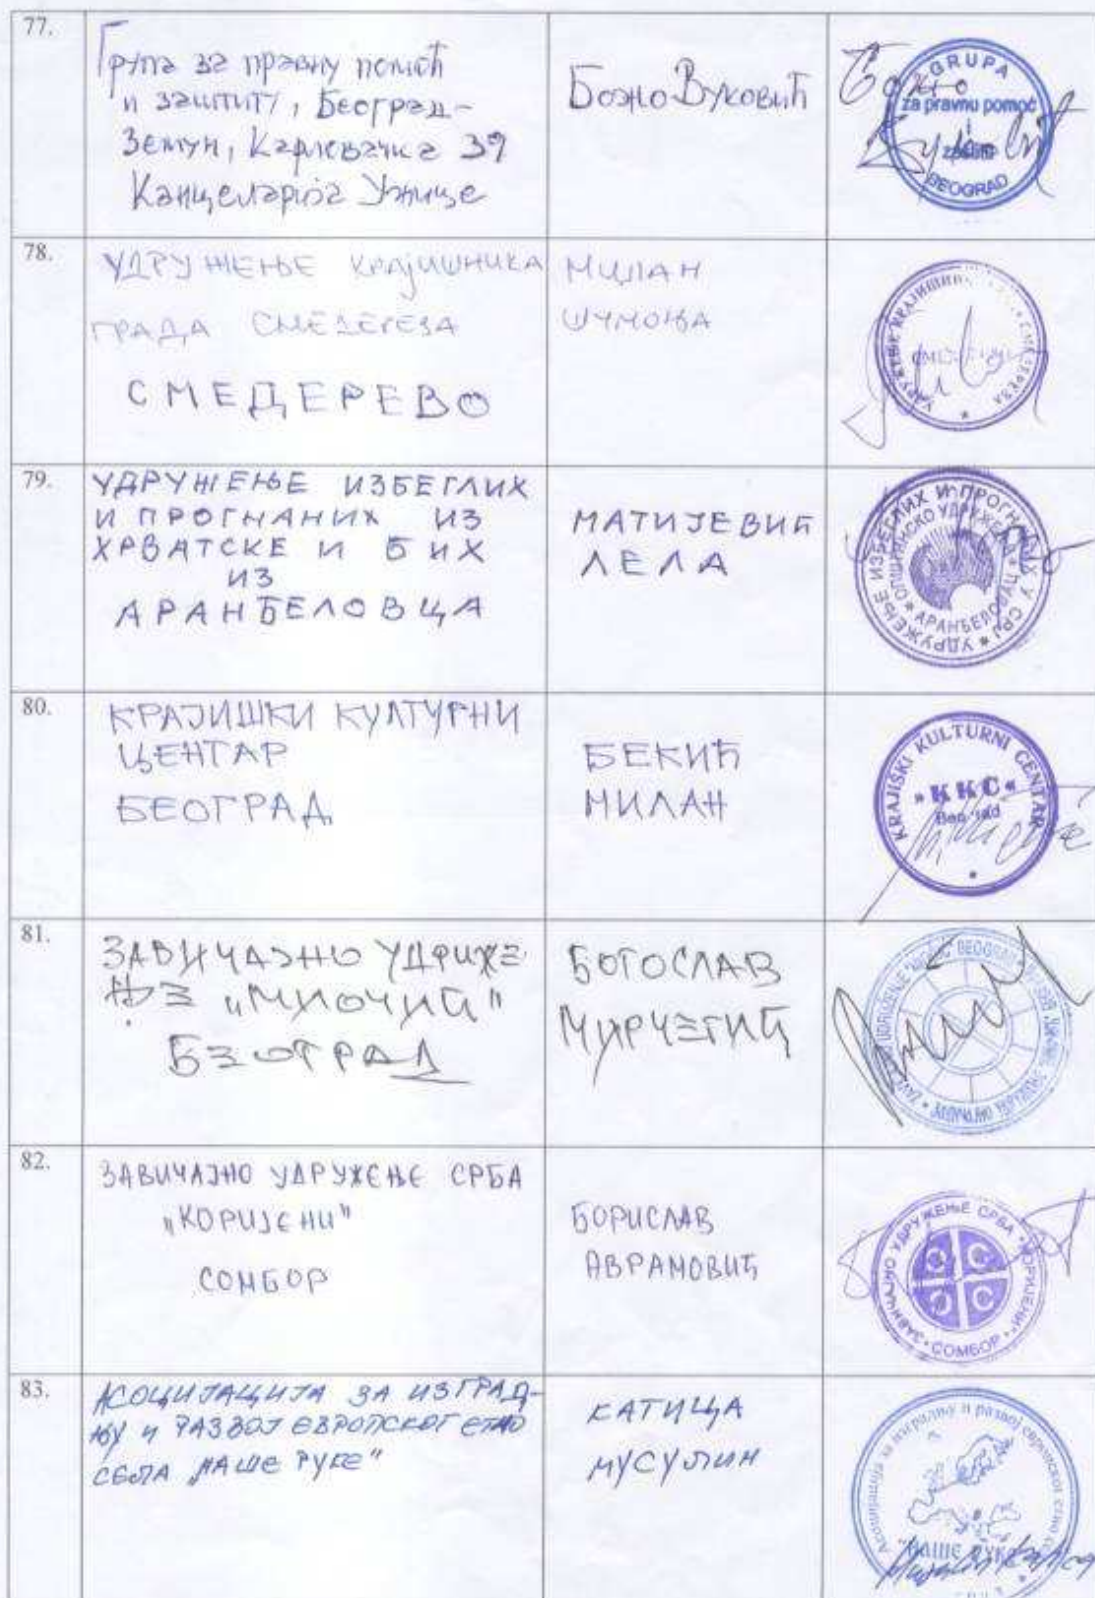 77.
Група за правну помоћ
и заштиту, Београд-
Земун, Карловачка 39
Канцеларија Ужице
Божо Вуковић
Божо
Вуковић
GRUPA
za pravnu pomoć
i
zaštitu
BEOGRAD
78.
УДРУЖЕЊЕ КРАЈИШНИКА
ГРАДА СМЕДЕРЕВА
СМЕДЕРЕВО
МИЛАН
ШУМОЊА
УДРУЖЕЊЕ КРАЈИШНИКА
79.
УДРУЖЕЊЕ ИЗБЕГЛИХ
И ПРОГНАНИХ ИЗ
ХРВАТСКЕ И БИХ
ИЗ
АРАНЂЕЛОВЦА
МАТИЈЕВИЋ
ЛЕЛА
УДРУЖЕЊЕ ИЗБЕГЛИХ И ПРОГНАНИХ У СРЈ
ОПШТИНСКО УДРУЖЕЊЕ
АРАНЂЕЛОВАЦ
80.
КРАЈИШКИ КУЛТУРНИ
ЦЕНТАР
БЕОГРАД
БЕКИЋ
МИЛАН
KRAJIŠKI KULTURNI CENTAR
"KKC"
Beograd
81.
ЗАВИЧАЈНО УДРУЖЕ
ЊЕ "МИОЧИЋ"
БЕОГРАД
БОГОСЛАВ
МИРЧЕТИЋ
BEOGRAD
82.
ЗАВИЧАЈНО УДРУЖЕЊЕ СРБА
"КОРИЈЕНИ"
СОМБОР
БОРИСЛАВ
АВРАМОВИЋ
ЗАВИЧАЈНО УДРУЖЕЊЕ СРБА "КОРИЈЕНИ"
СОМБОР
83.
АСОЦИЈАЦИЈА ЗА ИЗГРАД-
ЊУ И РАЗВОЈ ЕВРОПСКОГ ЕТНО
СЕЛА „НАШЕ РУКЕ"
КАТИЦА
МУСУЛИН
Асоцијација за изградњу и развој европског етно
"НАШЕ РУКЕ"